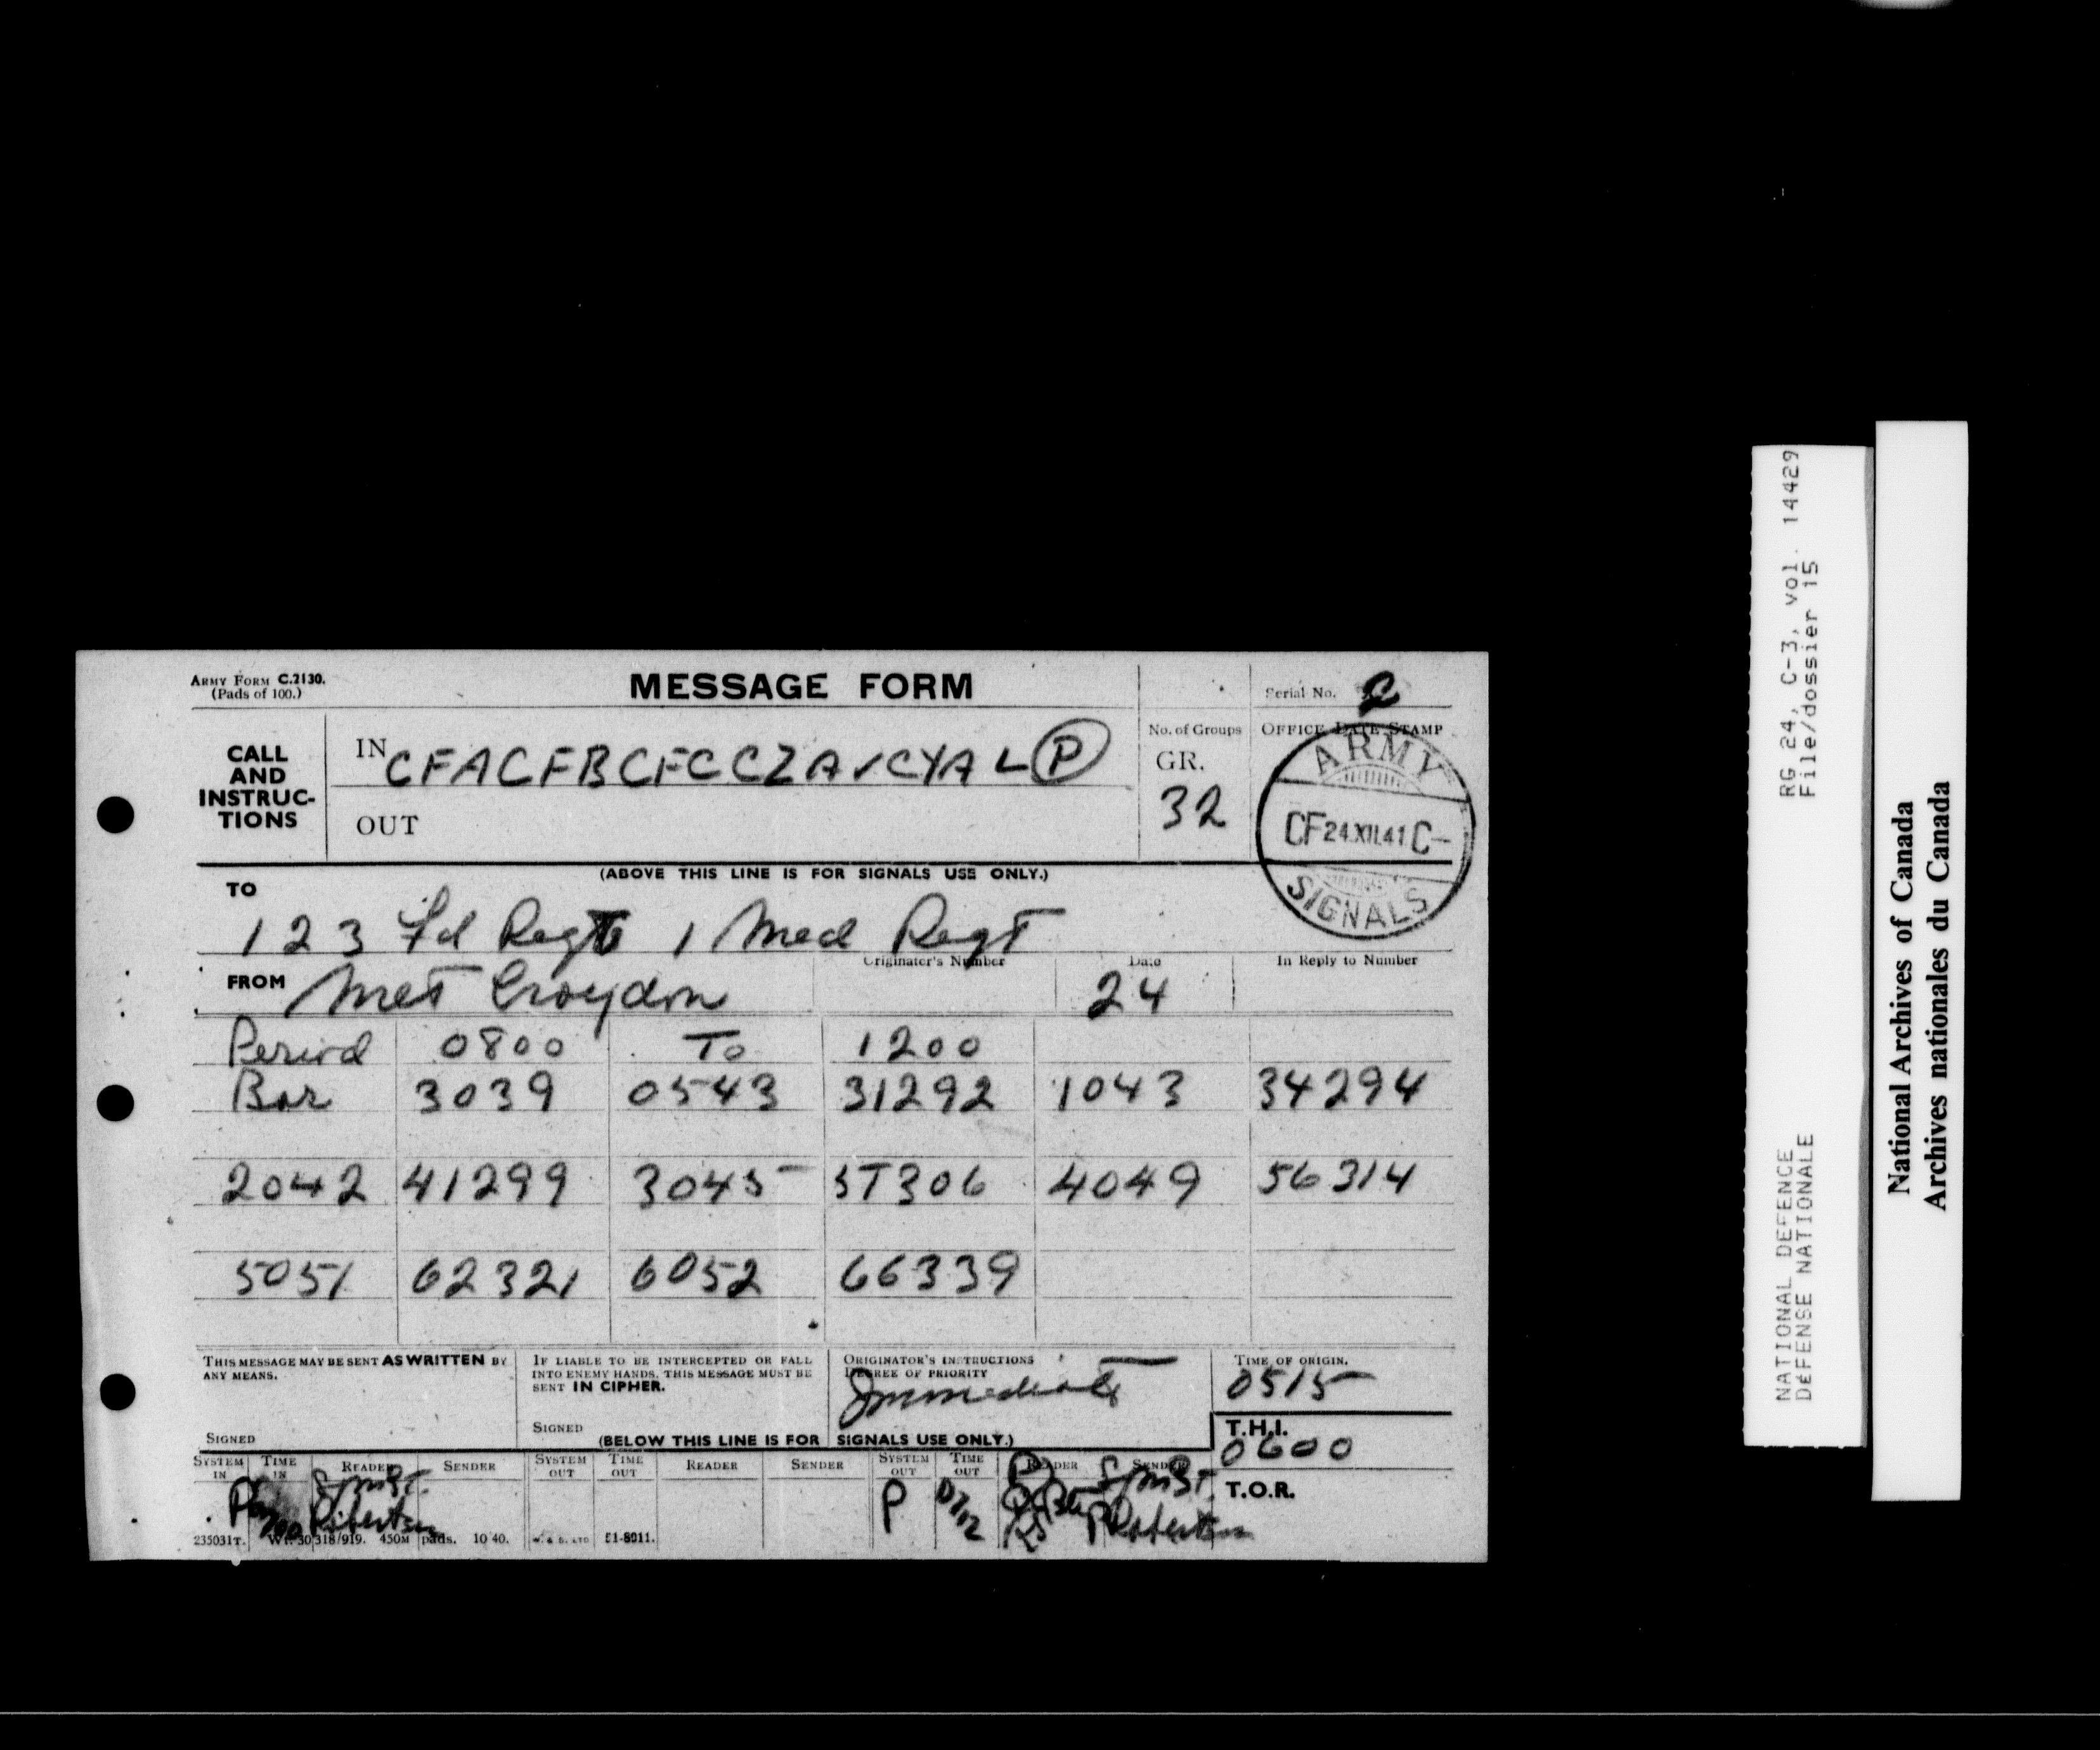 ARMY FORM C.2130.
(Pads of 100.)
MESSAGE FORM
Serial No. 2
CALL AND INSTRUC-TIONS
IN CFACFBCFCCZA✓CYAL P
OUT
No. of Groups
GR.
32
OFFICE DATE STAMP
ARMY
CF 24.XII.41 C-
SIGNALS
(ABOVE THIS LINE IS FOR SIGNALS USE ONLY.)
TO
1 2 3 Fd Regts 1 Med Regt
FROM Met Croydon
Originator's Number
Date
24
In Reply to Number
Period 0800 To 1200
Bar 3039 0543 31292 1043 34294
2042 41299 3045 5T306 4049 56314
5051 62321 6052 66339
THIS MESSAGE MAY BE SENT AS WRITTEN BY
ANY MEANS.
SIGNED
IF LIABLE TO BE INTERCEPTED OR FALL
INTO ENEMY HANDS, THIS MESSAGE MUST BE
SENT IN CIPHER.
SIGNED
ORIGINATOR'S INSTRUCTIONS
DEGREE OF PRIORITY
Immediate
TIME OF ORIGIN.
0515
(BELOW THIS LINE IS FOR SIGNALS USE ONLY.)
T.H.I.
0600
T.O.R.
SYSTEM IN TIME IN READER SENDER SYSTEM OUT TIME OUT READER SENDER SYSTEM OUT TIME OUT READER SENDER
P
Robertson
P
PRobertson
235031T. Wt. 30318/919. 450M pads. 10 40. 51-8011.
RG 24, C-3, vol. 14429
File/dossier 15
NATIONAL DEFENCE
DÉFENSE NATIONALE
National Archives of Canada
Archives nationales du Canada